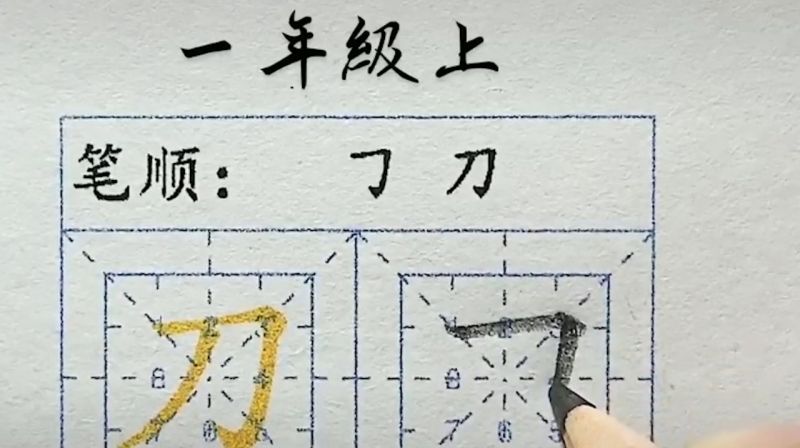 一年級上
笔顺： ㇆ 刀
刀 ㇆